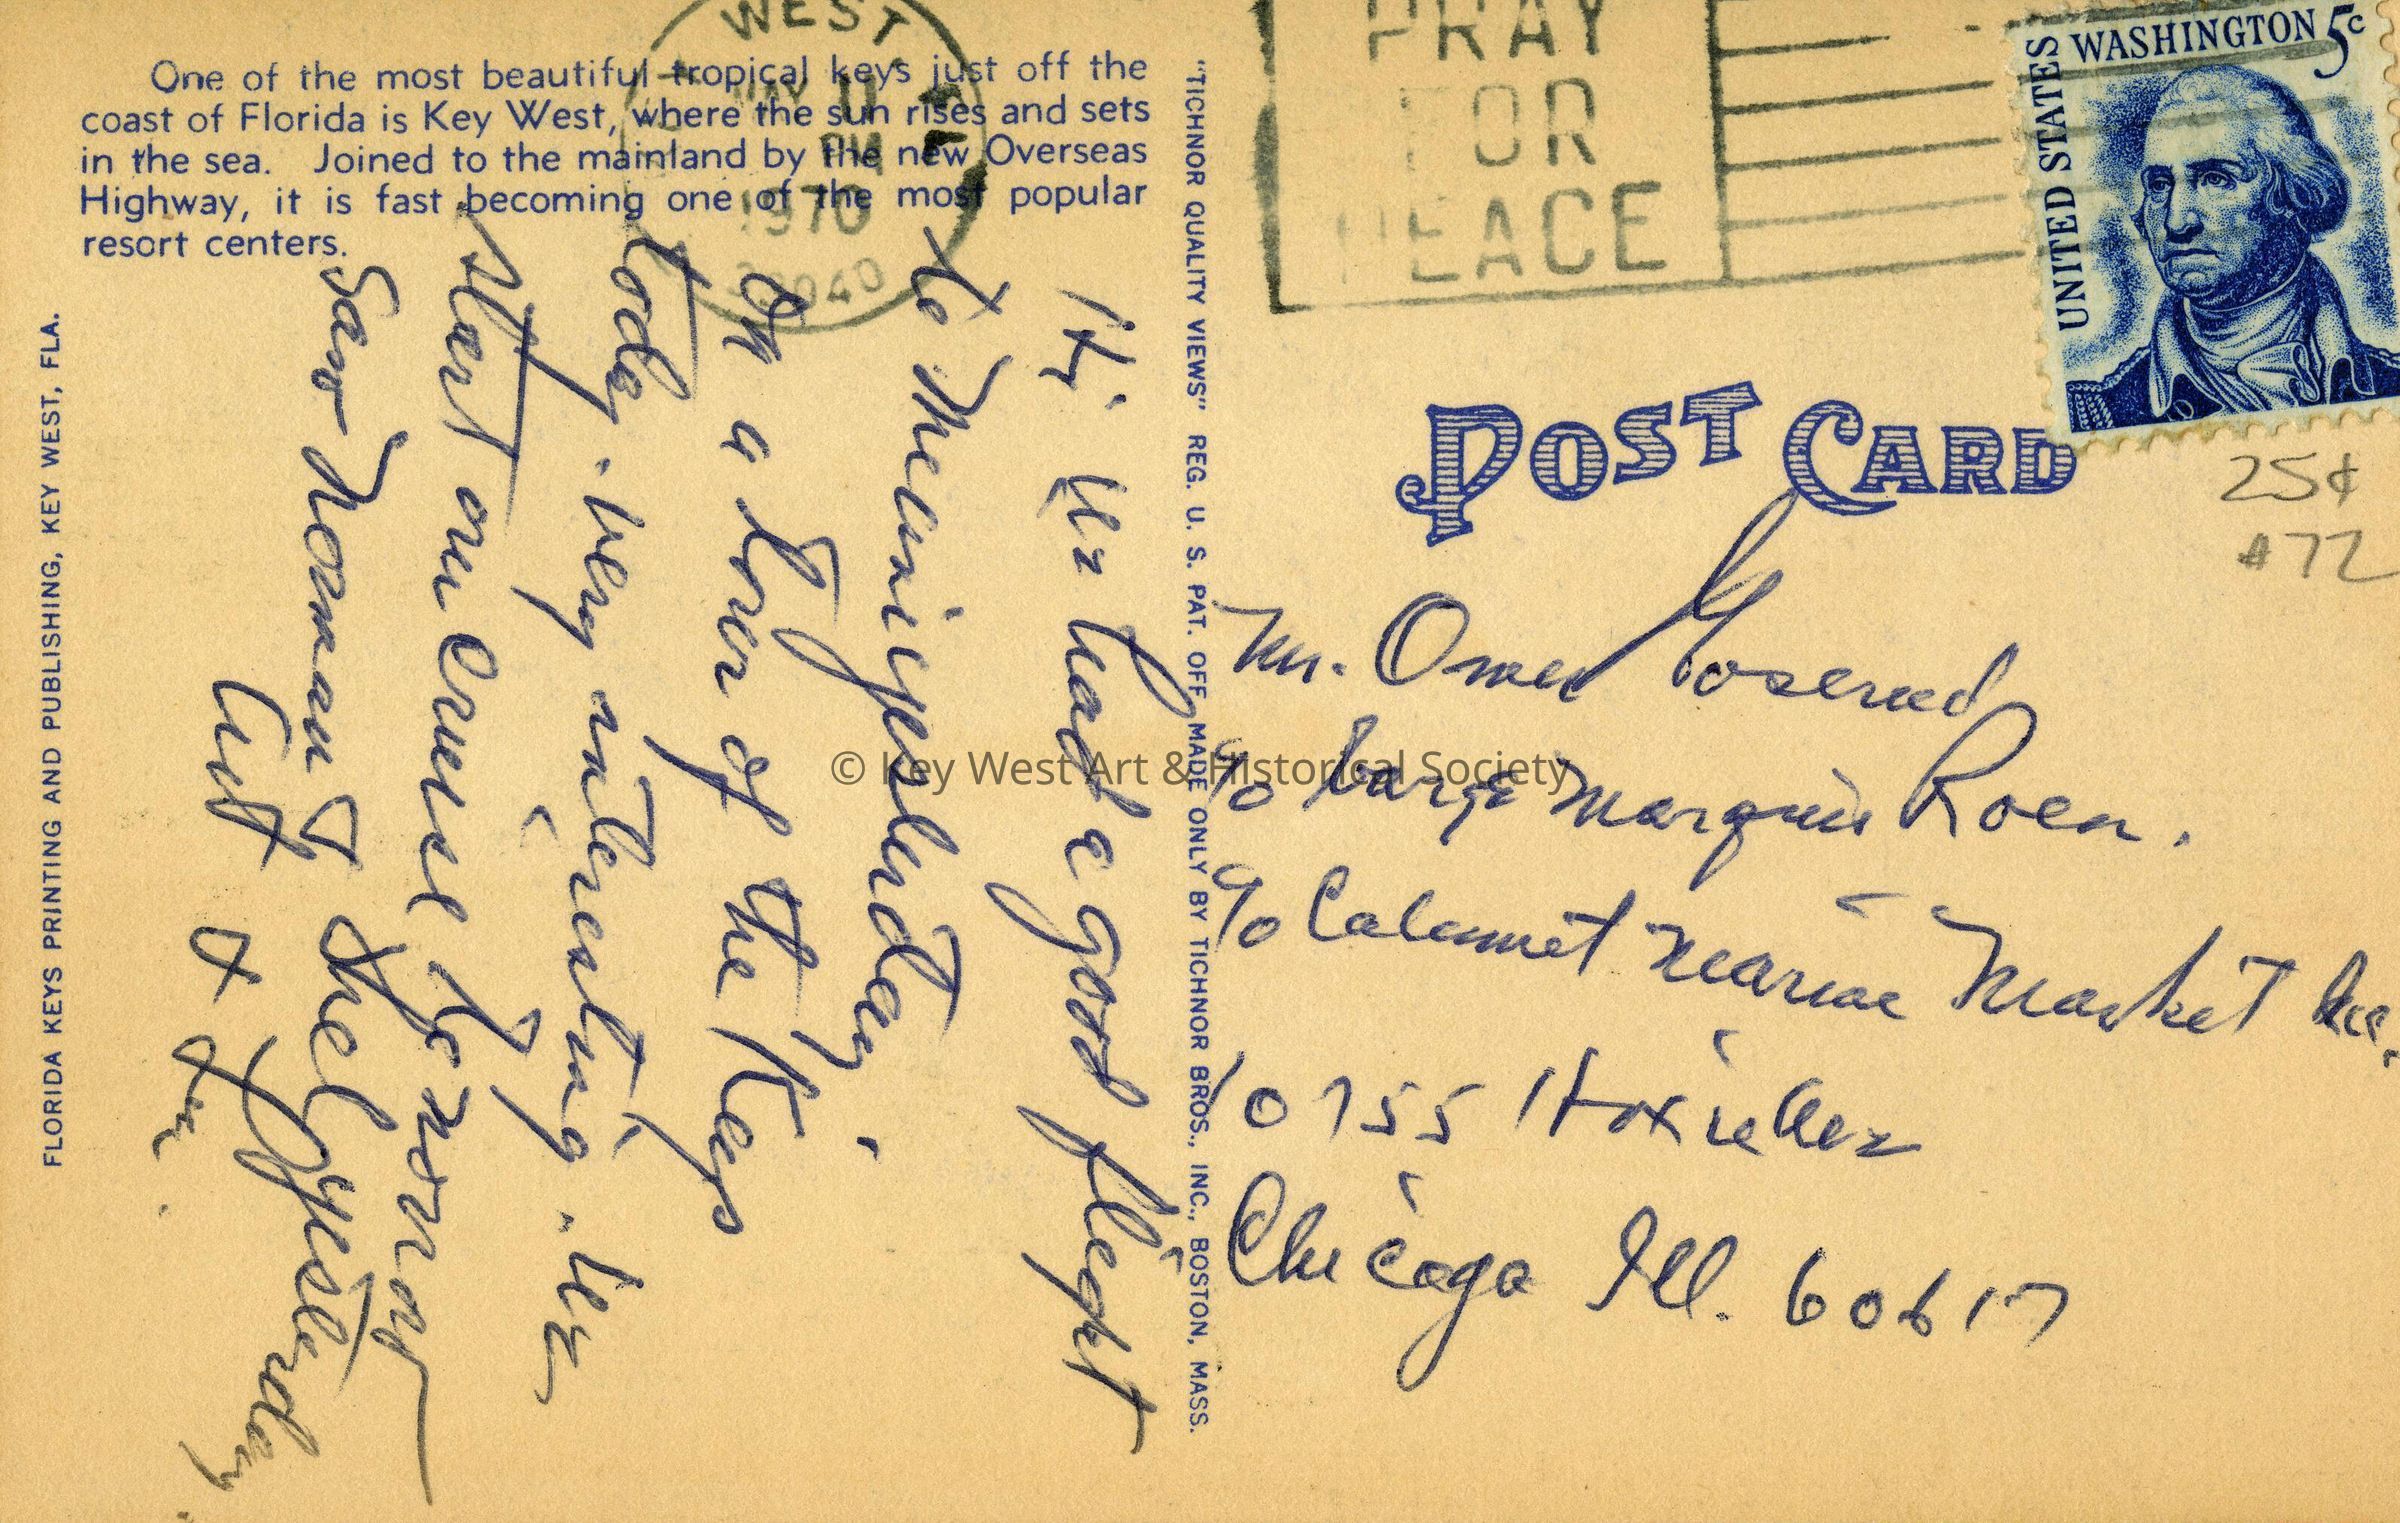 One of the most beautiful tropical keys just off the
coast of Florida is Key West, where the sun rises and sets
in the sea. Joined to the mainland by the new Overseas
Highway, it is fast becoming one of the most popular
resort centers.
FLORIDA KEYS PRINTING AND PUBLISHING, KEY WEST, FLA.
"TICHNOR QUALITY VIEWS" REG. U. S. PAT. OFF. MADE ONLY BY TICHNOR BROS., INC., BOSTON, MASS.
WEST
MAY 11
PM
1970
33040
PRAY
FOR
PEACE
UNITED STATES
WASHINGTON 5c
POST CARD
25¢
#77
Hi. We had a good flight
to Miami yesterday.
On a tour of the Keys
today. Very interesting. We
start our cruise
Saw Norman & Shel yesterday.
Mr. Omer
c/o barge Marquis Roen.
c/o Calumet Marine Market Inc.
10755 Hoxie Ave
Chicago Ill. 60617
© Key West Art & Historical Society